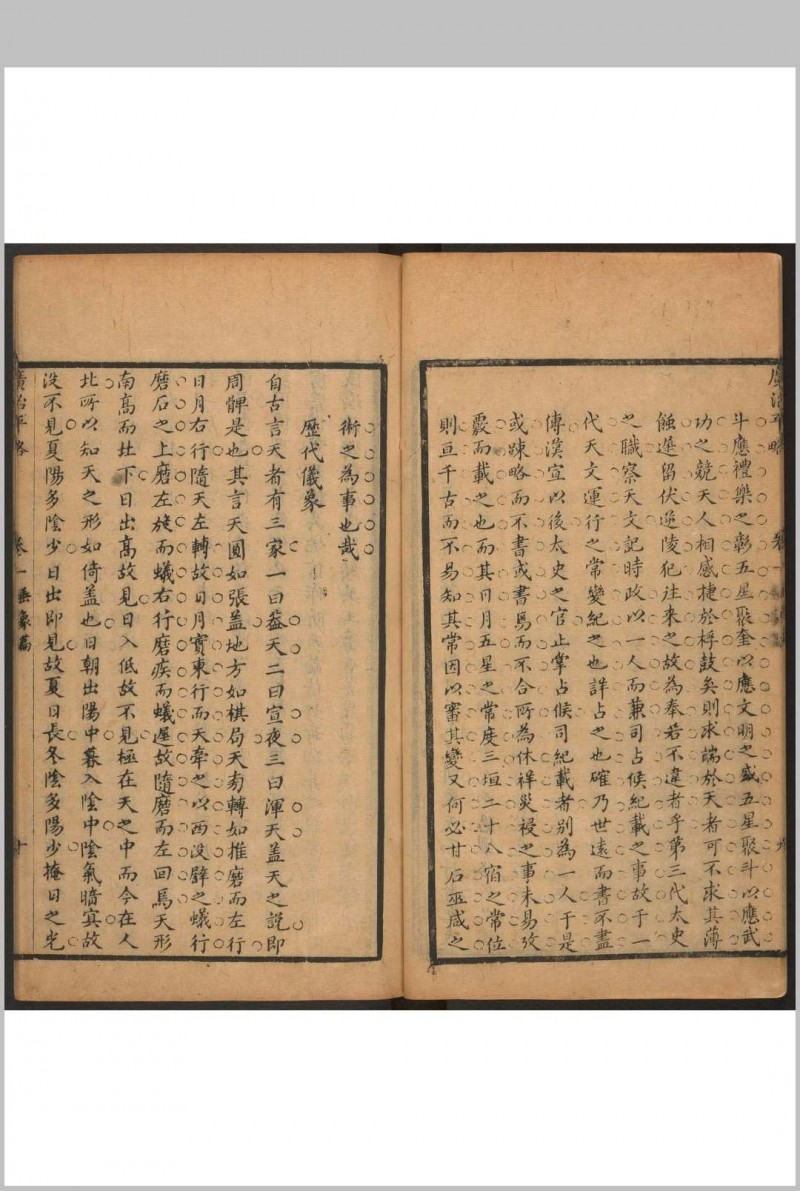 廣治平略
卷一
斗應禮樂之彰五星聚奎以應文明之盛五星聚斗以應武
功之競天人相感捷於桴鼓矣則求端於天者可不求其薄
蝕遲留伏逆陵犯往來之故為奉若不違者乎第三代太史
之職察天文記時政以一人而兼司占候紀載之事故于一
代天文運行之常變紀之也詳占之也確乃世遠而書不盡
傳漢宣以後太史之官止掌占候司紀載者別為一人于是
或踈略而不書或書焉而不合所為休祥災祲之事未易攷
覈而載之也而其日月五星之常度三垣二十八宿之常位
則亘千古而不易知其常因以審其變又何必甘石巫咸之
術之為事也哉
歷代儀象
自古言天者有三家一曰葢天二曰宣夜三曰渾天蓋天之說即
周髀是也其言天圓如張蓋地方如棋局天旁轉如推磨而左行
日月右行隨天左轉故日月實東行而天牽之以西沒譬之蟻行
磨石之上磨左旋而蟻右行磨疾而蟻遲故隨磨而左回焉天形
南高而北下日出高故見日入低故不見極在天之中而今在人
北所以知天之形如倚蓋也日朝出陽中暮入陰中陰氣暗冥故
沒不見夏陽多陰少日出即見故夏日長冬陰多陽少掩日之光
廣治平略
卷一垂象篇
十